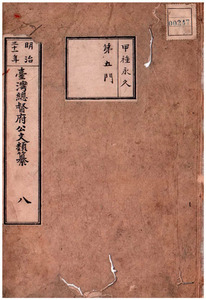 00247
甲種永久
第五門
明治
三十一年
臺灣總督府公文類纂
八